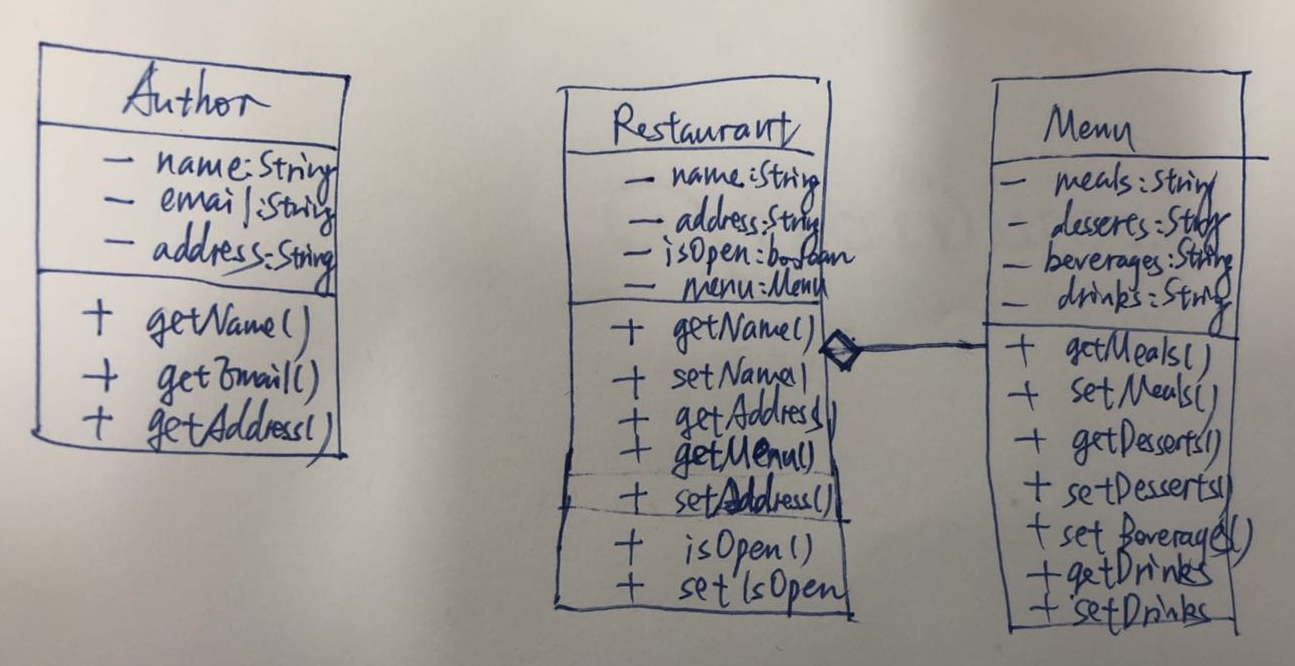 Author
- name:String
- email:String
- address:String
+ getName()
+ getEmail()
+ getAddress()
Restaurant
- name:String
- address:String
- isOpen:boolean
- menu:Menu
+ getName()
+ setName()
+ getAddress()
+ getMenu()
+ setAddress()
+ isOpen()
+ setIsOpen
Menu
- meals:String
- desserts:String
- beverages:String
- drinks:String
+ getMeals()
+ setMeals()
+ getDesserts()
+ setDesserts()
+ set Beverages()
+ getDrinks
+ setDrinks